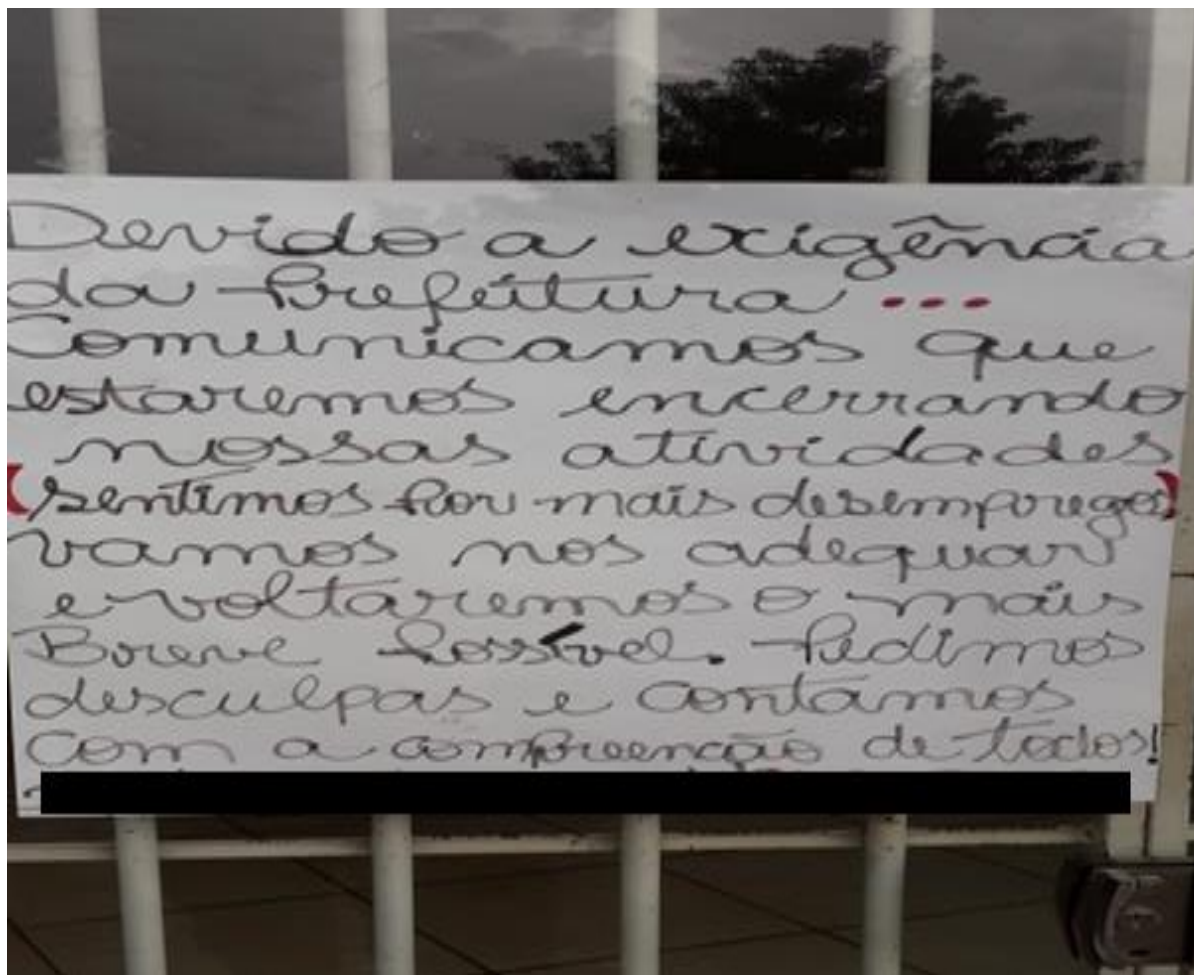 Devido a exigência
da Prefeitura ...
Comunicamos que
estaremos encerrando
nossas atividades
(sentimos por mais desempregos)
vamos nos adequar
e voltaremos o mais
Breve possível. Pedimos
desculpas e contamos
com a compreenção de todos!